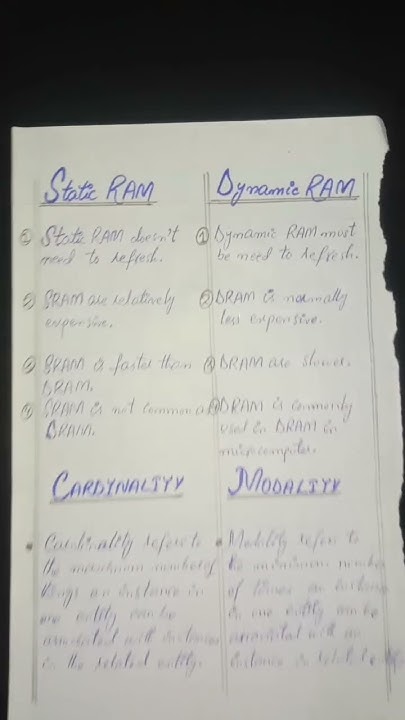 Static RAM
① Static RAM doesn't
need to refresh.
② SRAM are relatively
expensive.
③ SRAM is faster than
DRAM.
④ SRAM is not common as
DRAM.
Dynamic RAM
① Dynamic RAM must
be need to refresh.
② DRAM is normally
less expensive.
③ DRAM are slower.
④ DRAM is commonly
used in DRAM in
microcomputer.
CARDINALITY
• Cardinality refers to
the maximum number of
things an instance in
one entity can be
associated with instances
in the related entity.
MODALITY
• Modility refers to
the minimum number
of times an instance
in one entity can be
associated with an
instance in related